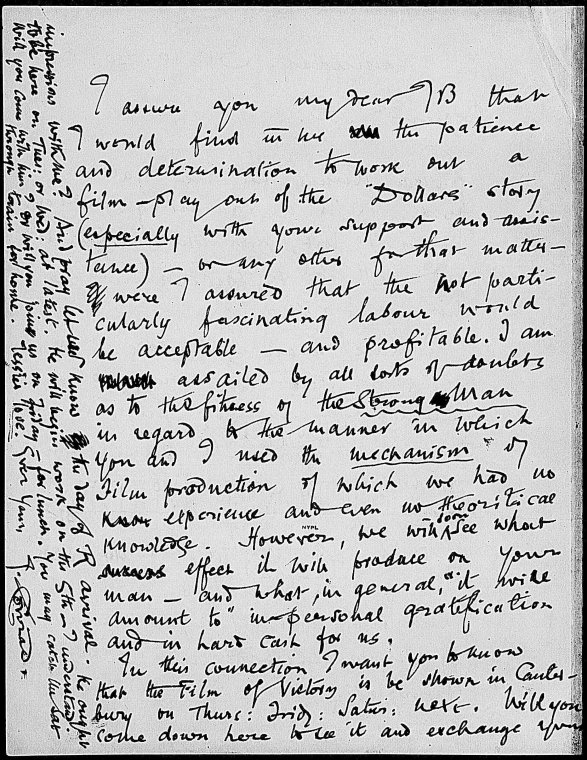 I assure you my dear JB that
I would find in me the patience
and determination to work out a
film-play out of the "Dollars" story
(especially with your support and assis-
tance) — or any other for that matter —
if were I assured that the not parti-
cularly fascinating labour would
be acceptable — and profitable. I am
assailed by all sorts of doubts
as to the fitness of the Strong Man
in regard to the manner in which
you and I used the mechanism of
Film production of which we had no
experience and even no theoritical
knowledge. However, we will soon see what
NYPL
effect it will produce on your
man — and what, in general, "it will
amount to" in personal gratification
and in hard cash for us.
In this connection I want you to know
that the Film of Victory is be shown in Canter-
bury on Thurs: Frid: Satur: next. Will you
come down here to see it and exchange your
impressions with me? And pray let us know the day of R arrival. He ought
to be here on Tues: or Wed: at latest. He will begin work on the 5th I understand.
Will you come with him? Or will you join us on Friday — for lunch. You may catch the last
through train for home. Jessie's love. Ever Yours,
J. Conrad.